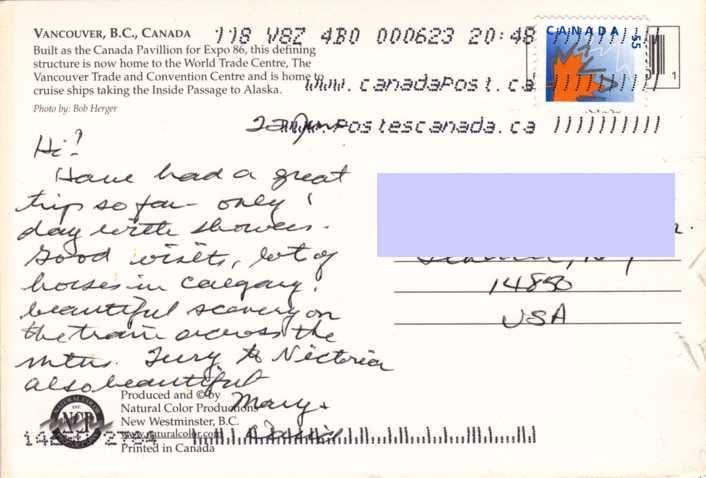 VANCOUVER, B.C., CANADA
Built as the Canada Pavillion for Expo 86, this defining
structure is now home to the World Trade Centre, The
Vancouver Trade and Convention Centre and is home to
cruise ships taking the Inside Passage to Alaska.
Photo by: Bob Herger
118 V8Z 4B0 000623 20:48
www.canadapost.ca
www.postescanada.ca
CANADA
55
1
Hi!
Have had a great
trip so far - only 1
day with showers.
Good visits, lot of
horses in Calgary,
beautiful scenery on
the train across the
mtns. Ferry to Victoria
also beautiful
Mary &
David
14850
USA
NCP
Produced and © by
Natural Color Productions
New Westminster, B.C.
www.naturalcolor.com
Printed in Canada